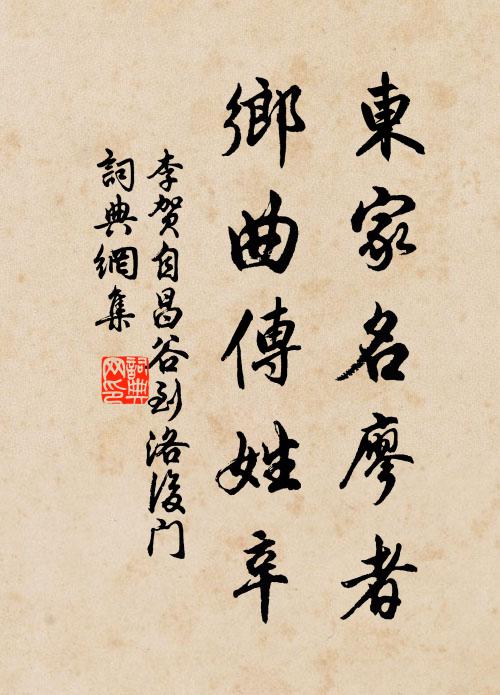 東家名廖者
鄉曲傳姓辛
李賀自昌谷到洛後门
詞典網集
詞典網印